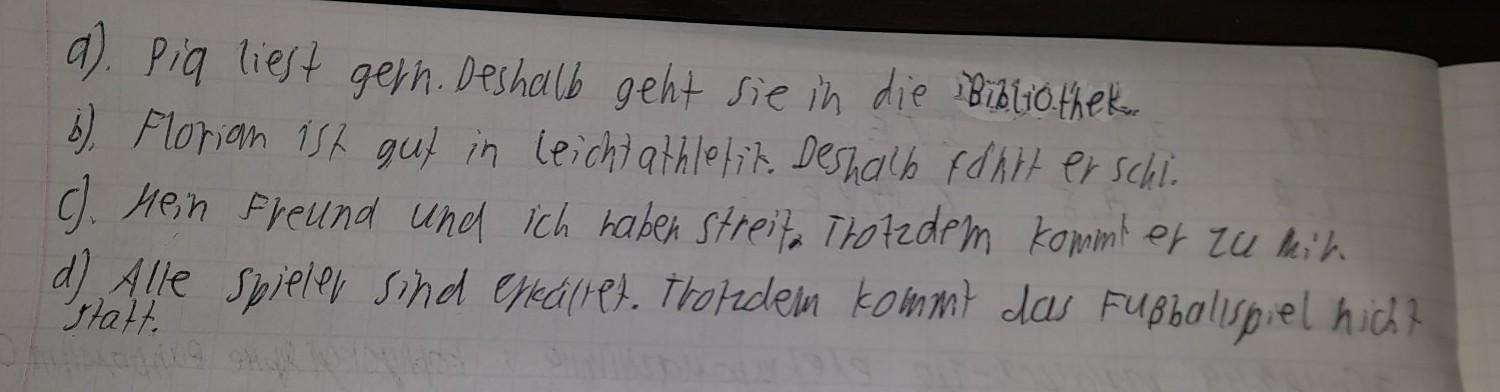 a). Pia liest gern. Deshalb geht sie in die Bibliothek.
b). Florian ist gut in Leichtathletik. Deshalb fährt er schi.
c). Mein Freund und ich haben streit. Trotzdem kommt er zu mir.
d) Alle Spieler sind erkältet. Trotzdem kommt das Fußballspiel nicht
statt.